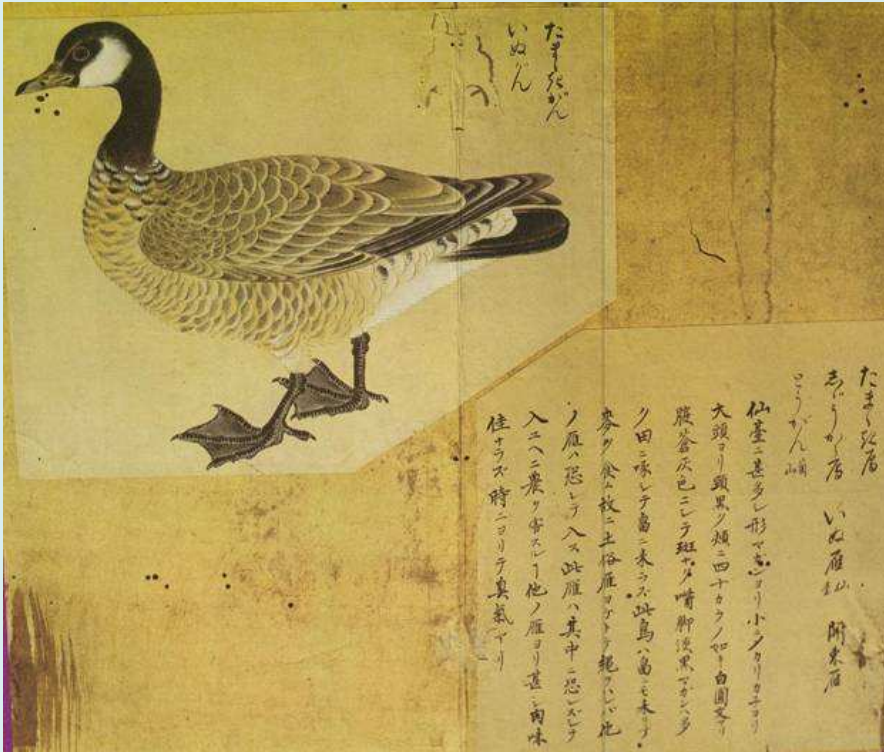 いぬがん
雁
志゛うから雁 いぬ雁 仙 関東雁
とうがん
仙臺ニ甚多シ形マガンヨリ小ニメカリカ子ヨリ
大頭ヨリ頸黒ク頬ニ四十カラノ如キ白圓文アリ
腹蒼灰色ニシテ斑アリ嘴脚淡黒マガンハ多
ク田ニ啄シテ畠ニ来ラズ此鳥ハ畠ニモ来リテ
麥ヲ食ム故ニ土俗雁ヨケトテ縄ヲハレバ他
ノ雁ハ恐レテ入ス此雁ハ其中ニ恐レズシテ
入ユヘニ農ヲ害スル丁他ノ雁ヨリ甚シ肉味
佳ナラズ時ニヨリテ臭氣アリ